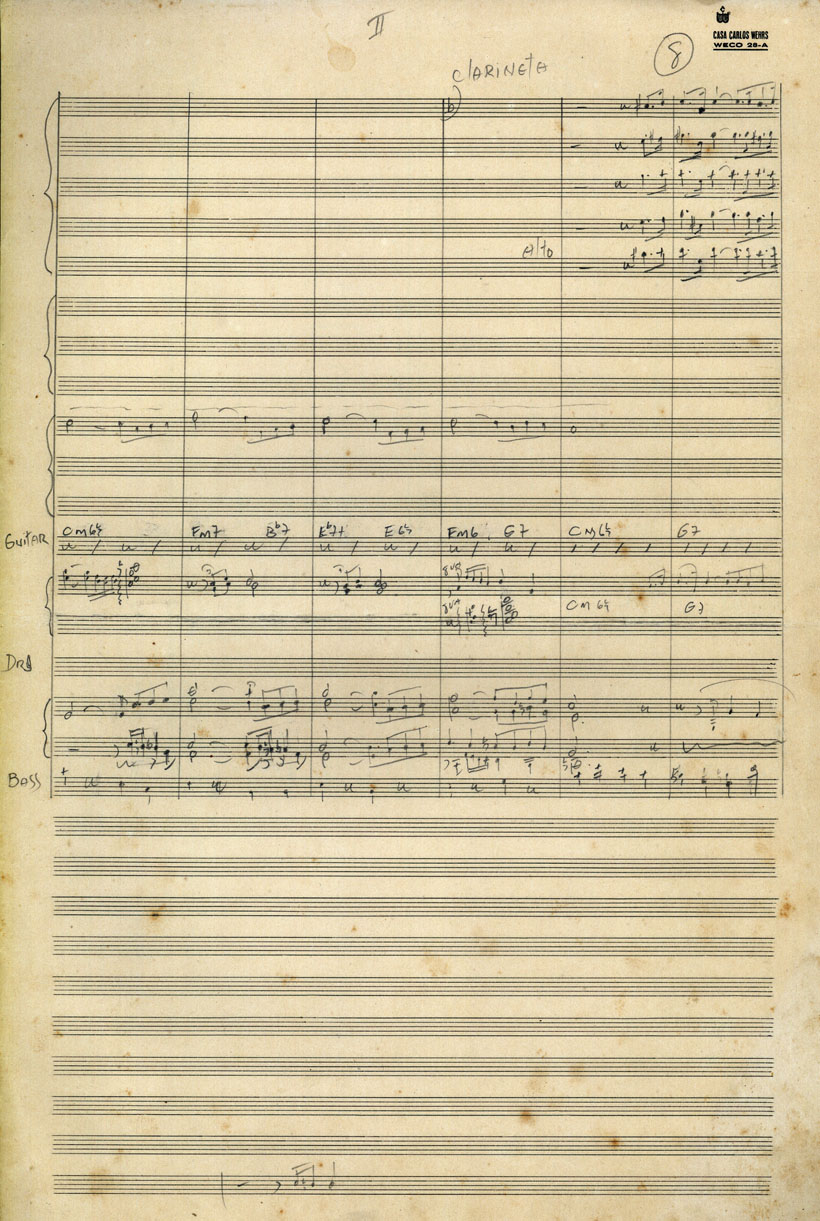 II
CASA CARLOS WEHRS
WECO 28-A
8
CLARINETA
Alto
Guitar
Cm6 Fm7 Bb7 Eb7+ Fm6 G7 Cm6 G7
8va
8va
Cm6 G7
Bass